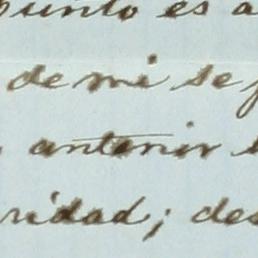 punto es a
de mi se
anterior
ridad; des